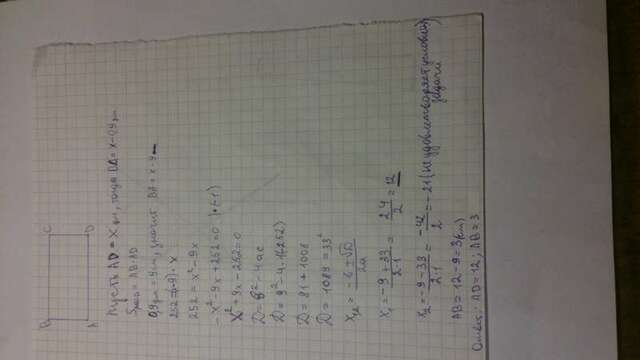 B C
A D
Пусть AD = x дм, тогда BA = x - 0,9 дм
Sпрям = AB·AD
0,9 дм = 9 см, значит BA = x - 9
252 = (x-9)·x
252 = x² - 9x
-x² - 9x + 252 = 0 |·(-1)
x² + 9x - 252 = 0
D = b² - 4ac
D = 9² - 4·1·(-252)
D = 81 + 1008
D = 1089 = 33²
x₁,₂ = (-b ± √D)/2a
x₁ = (-9 + 33)/(2·1) = 24/2 = 12
x₂ = (-9 - 33)/(2·1) = -42/2 = -21 (не удовлетворяет условию
задачи)
AB = 12 - 9 = 3 (см)
Ответ: AD = 12 ; AB = 3